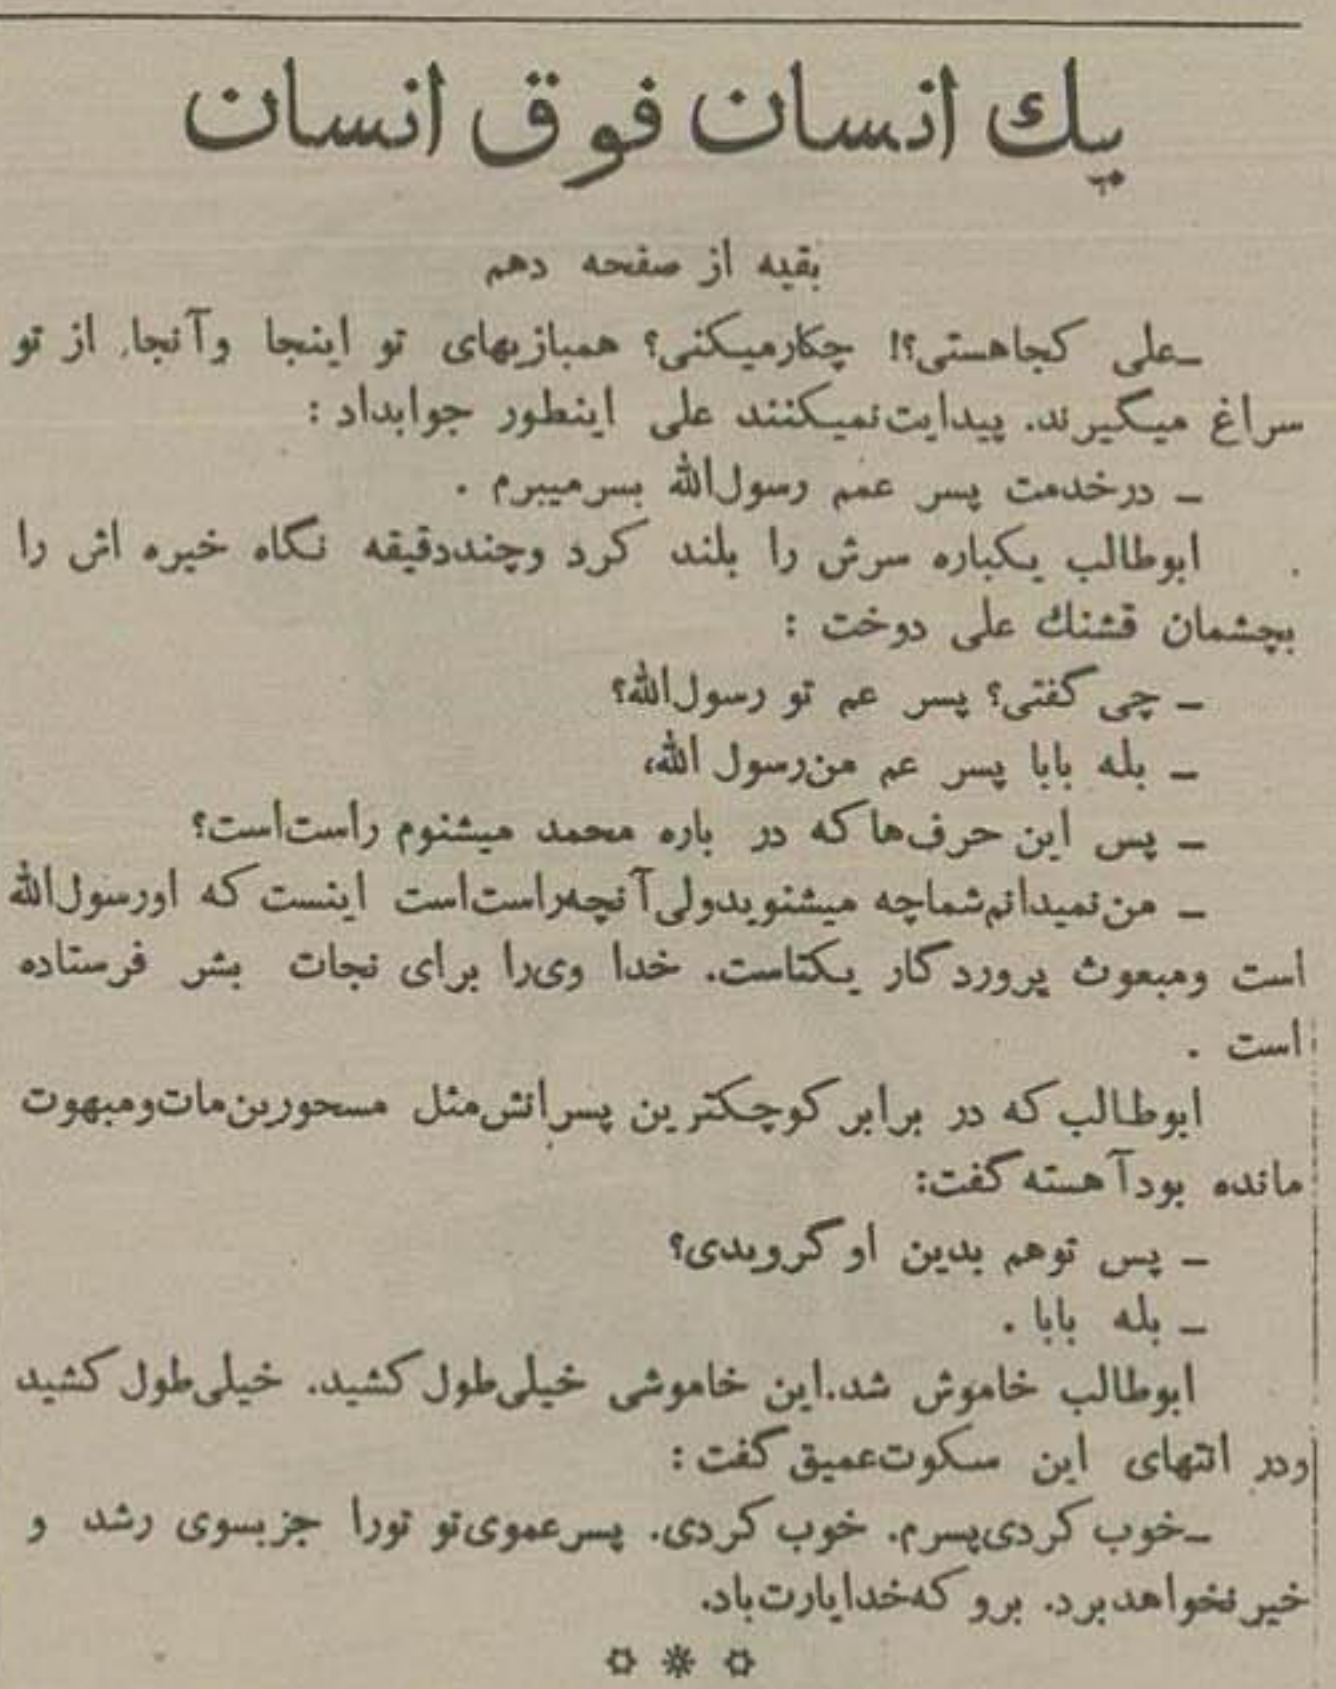 یك انسان فوق انسان
بقیه از صفحه دهم
ـعلی کجاهستی؟! چکارمیکنی؟ همبازیهای تو اینجا وآنجا, از تو
سراغ میگیرند. پیدایت‌نمیکنند علی اینطور جوابداد :
ـ درخدمت پسر عمم رسول‌الله بسرمیبرم .
ابوطالب یکباره سرش را بلند کرد وچنددقیقه نگاه خیره اش را
بچشمان قشنك علی دوخت :
ـ چی گفتی؟ پسر عم تو رسول‌الله؟
ـ بله بابا پسر عم من‌رسول الله،
ـ پس این حرف‌ها که در باره محمد میشنوم راست‌است؟
ـ من‌نمیدانم‌شماچه میشنویدولی‌آنچه‌راست‌است اینست که اورسول‌الله
است ومبعوث پروردگار یکتاست. خدا وی‌را برای نجات بشر فرستاده
است .
ابوطالب که در برابر کوچکترین پسرانش‌مثل مسحورین‌مات‌ومبهوت
مانده بودآهسته گفت:
ـ پس توهم بدین او گرویدی؟
ـ بله بابا .
ابوطالب خاموش شد.این خاموشی خیلی‌طول کشید. خیلی‌طول کشید
ودر انتهای این سکوت‌عمیق گفت :
ـخوب کردی‌پسرم. خوب کردی. پسرعموی‌تو تورا جزبسوی رشد و
خیرنخواهدبرد. برو که‌خدایارت‌باد.
✿ ❋ ✿